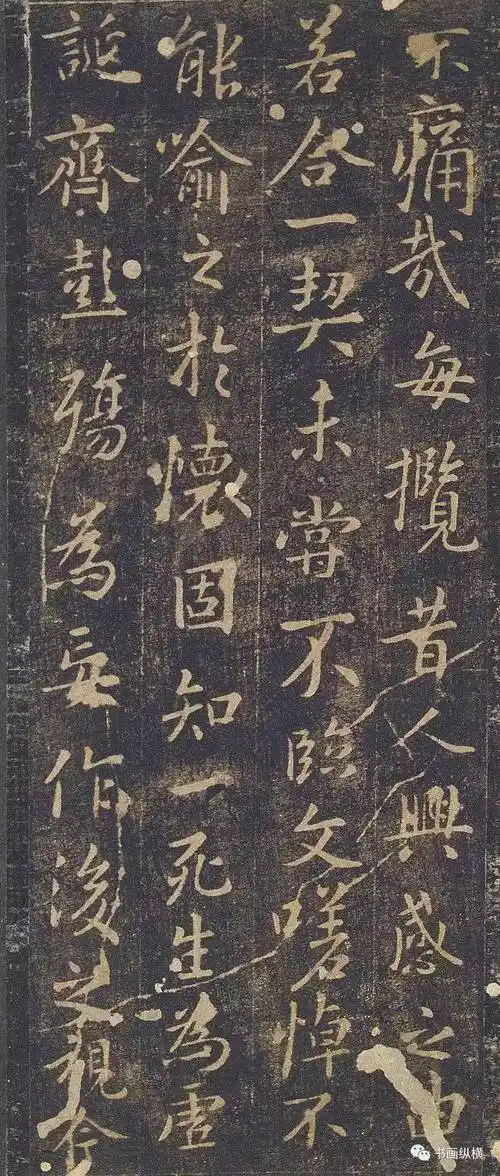 不痛哉每攬昔人興感之由
若合一契未嘗不臨文嗟悼不
能喻之於懷固知一死生為虛
誕齊彭殤為妄作後之視今
书画纵横